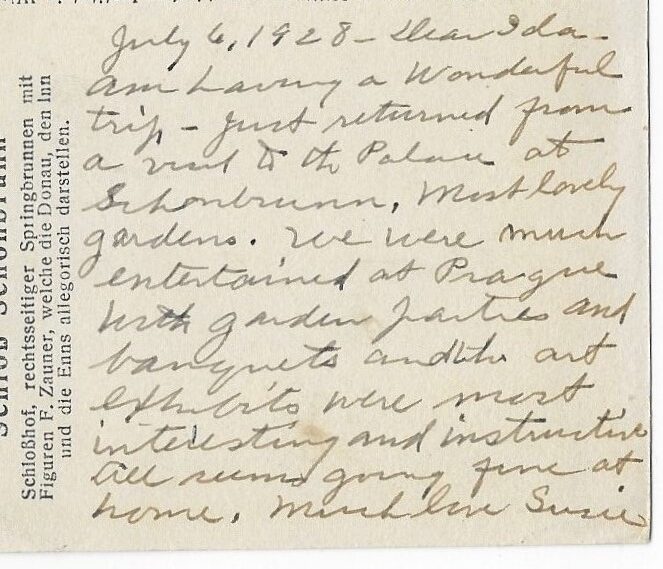 July 6, 1928 - Dear Ida -
Am having a Wonderful
trip - Just returned from
a visit to the Palace at
Schonbrunn, Most lovely
gardens. We were much
entertained at Prague
with garden parties and
banquets and the art
exhibits were most
interesting and instructive
All seems going fine at
home. Much love Susie
Schloß Schönbrunn
Schloßhof, rechtsseitiger Springbrunnen mit
Figuren F. Zauner, welche die Donau, den Inn
und die Enns allegorisch darstellen.